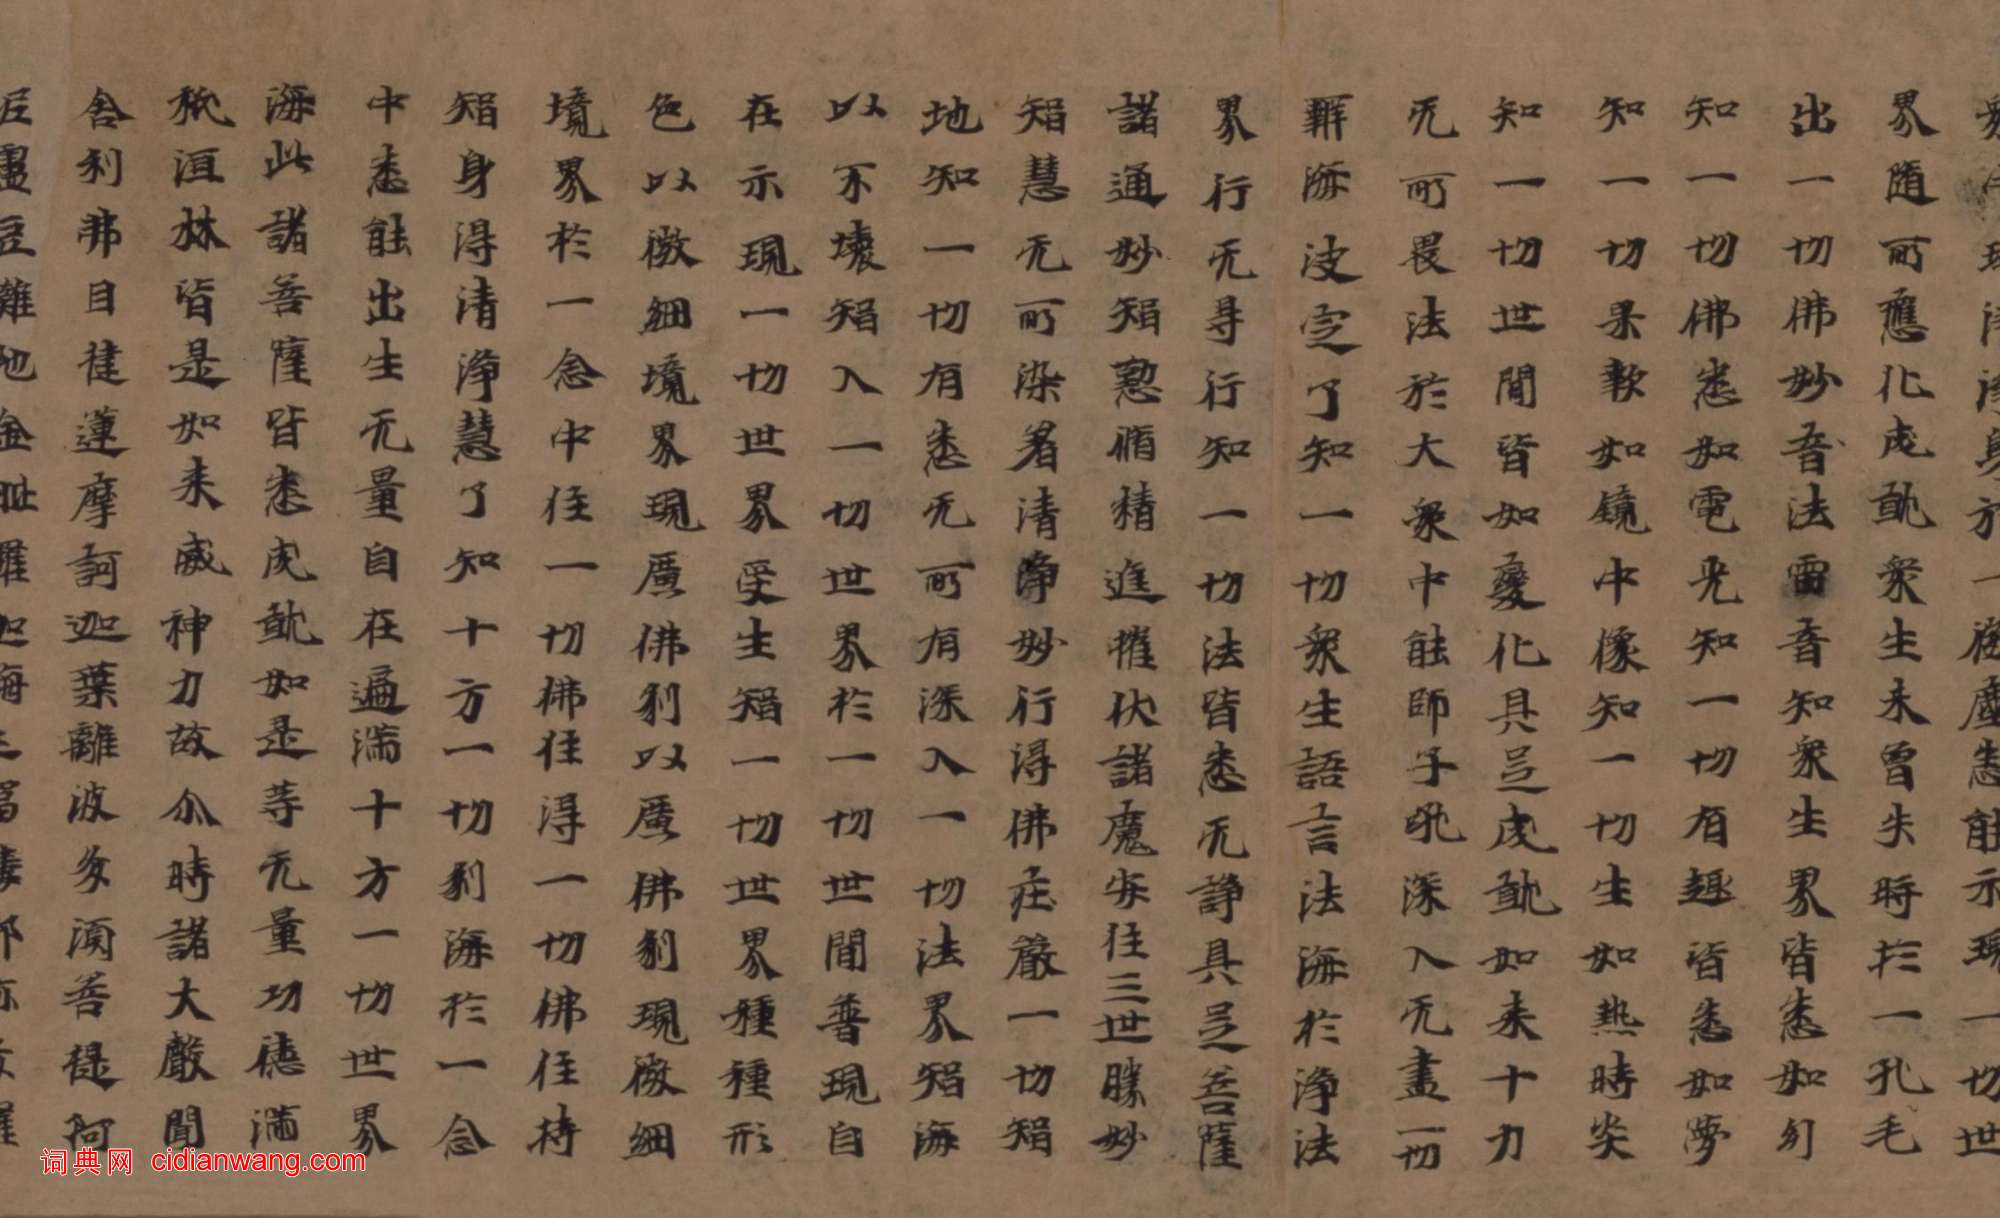 身於一微塵悉能示現一切世
界随所應化成就衆生未曾失時於一孔毛
出一切佛妙音法雷音知衆生界皆悉如幻
知一切佛悉如電光知一切有趣皆悉如夢
知一切果報如鏡中像知一切生如熱時炎
知一切世間皆如變化具足成就如来十力
无所畏法於大衆中能師子吼深入无盡一切
辯海决定了知一切衆生語言法海於淨法
界行无㝵行知一切法皆悉无諍具足菩薩
諸通妙智懃脩精進摧伏諸魔安住三世勝妙
智慧无所染著清淨妙行得佛莊嚴一切智
地知一切有悉无所有深入一切法界智海
以不壞智入一切世界於一切世間普現自
在示現一切世界受生智一切世界種種形
色以微細境界現廣佛刹以廣佛刹現微細
境界於一念中住一切佛住得一切佛住持
智身得清淨慧了知十方一切刹海於一念
中悉能出生无量自在遍滿十方一切世界
海此諸菩薩皆悉成就如是等无量功德滿
秖洹林皆是如来威神力故尒時諸大聲聞
舍利弗目揵連摩訶迦葉離波多須菩提阿
盧豆難陀金毗羅迦旃
词典网 cidianwang.com